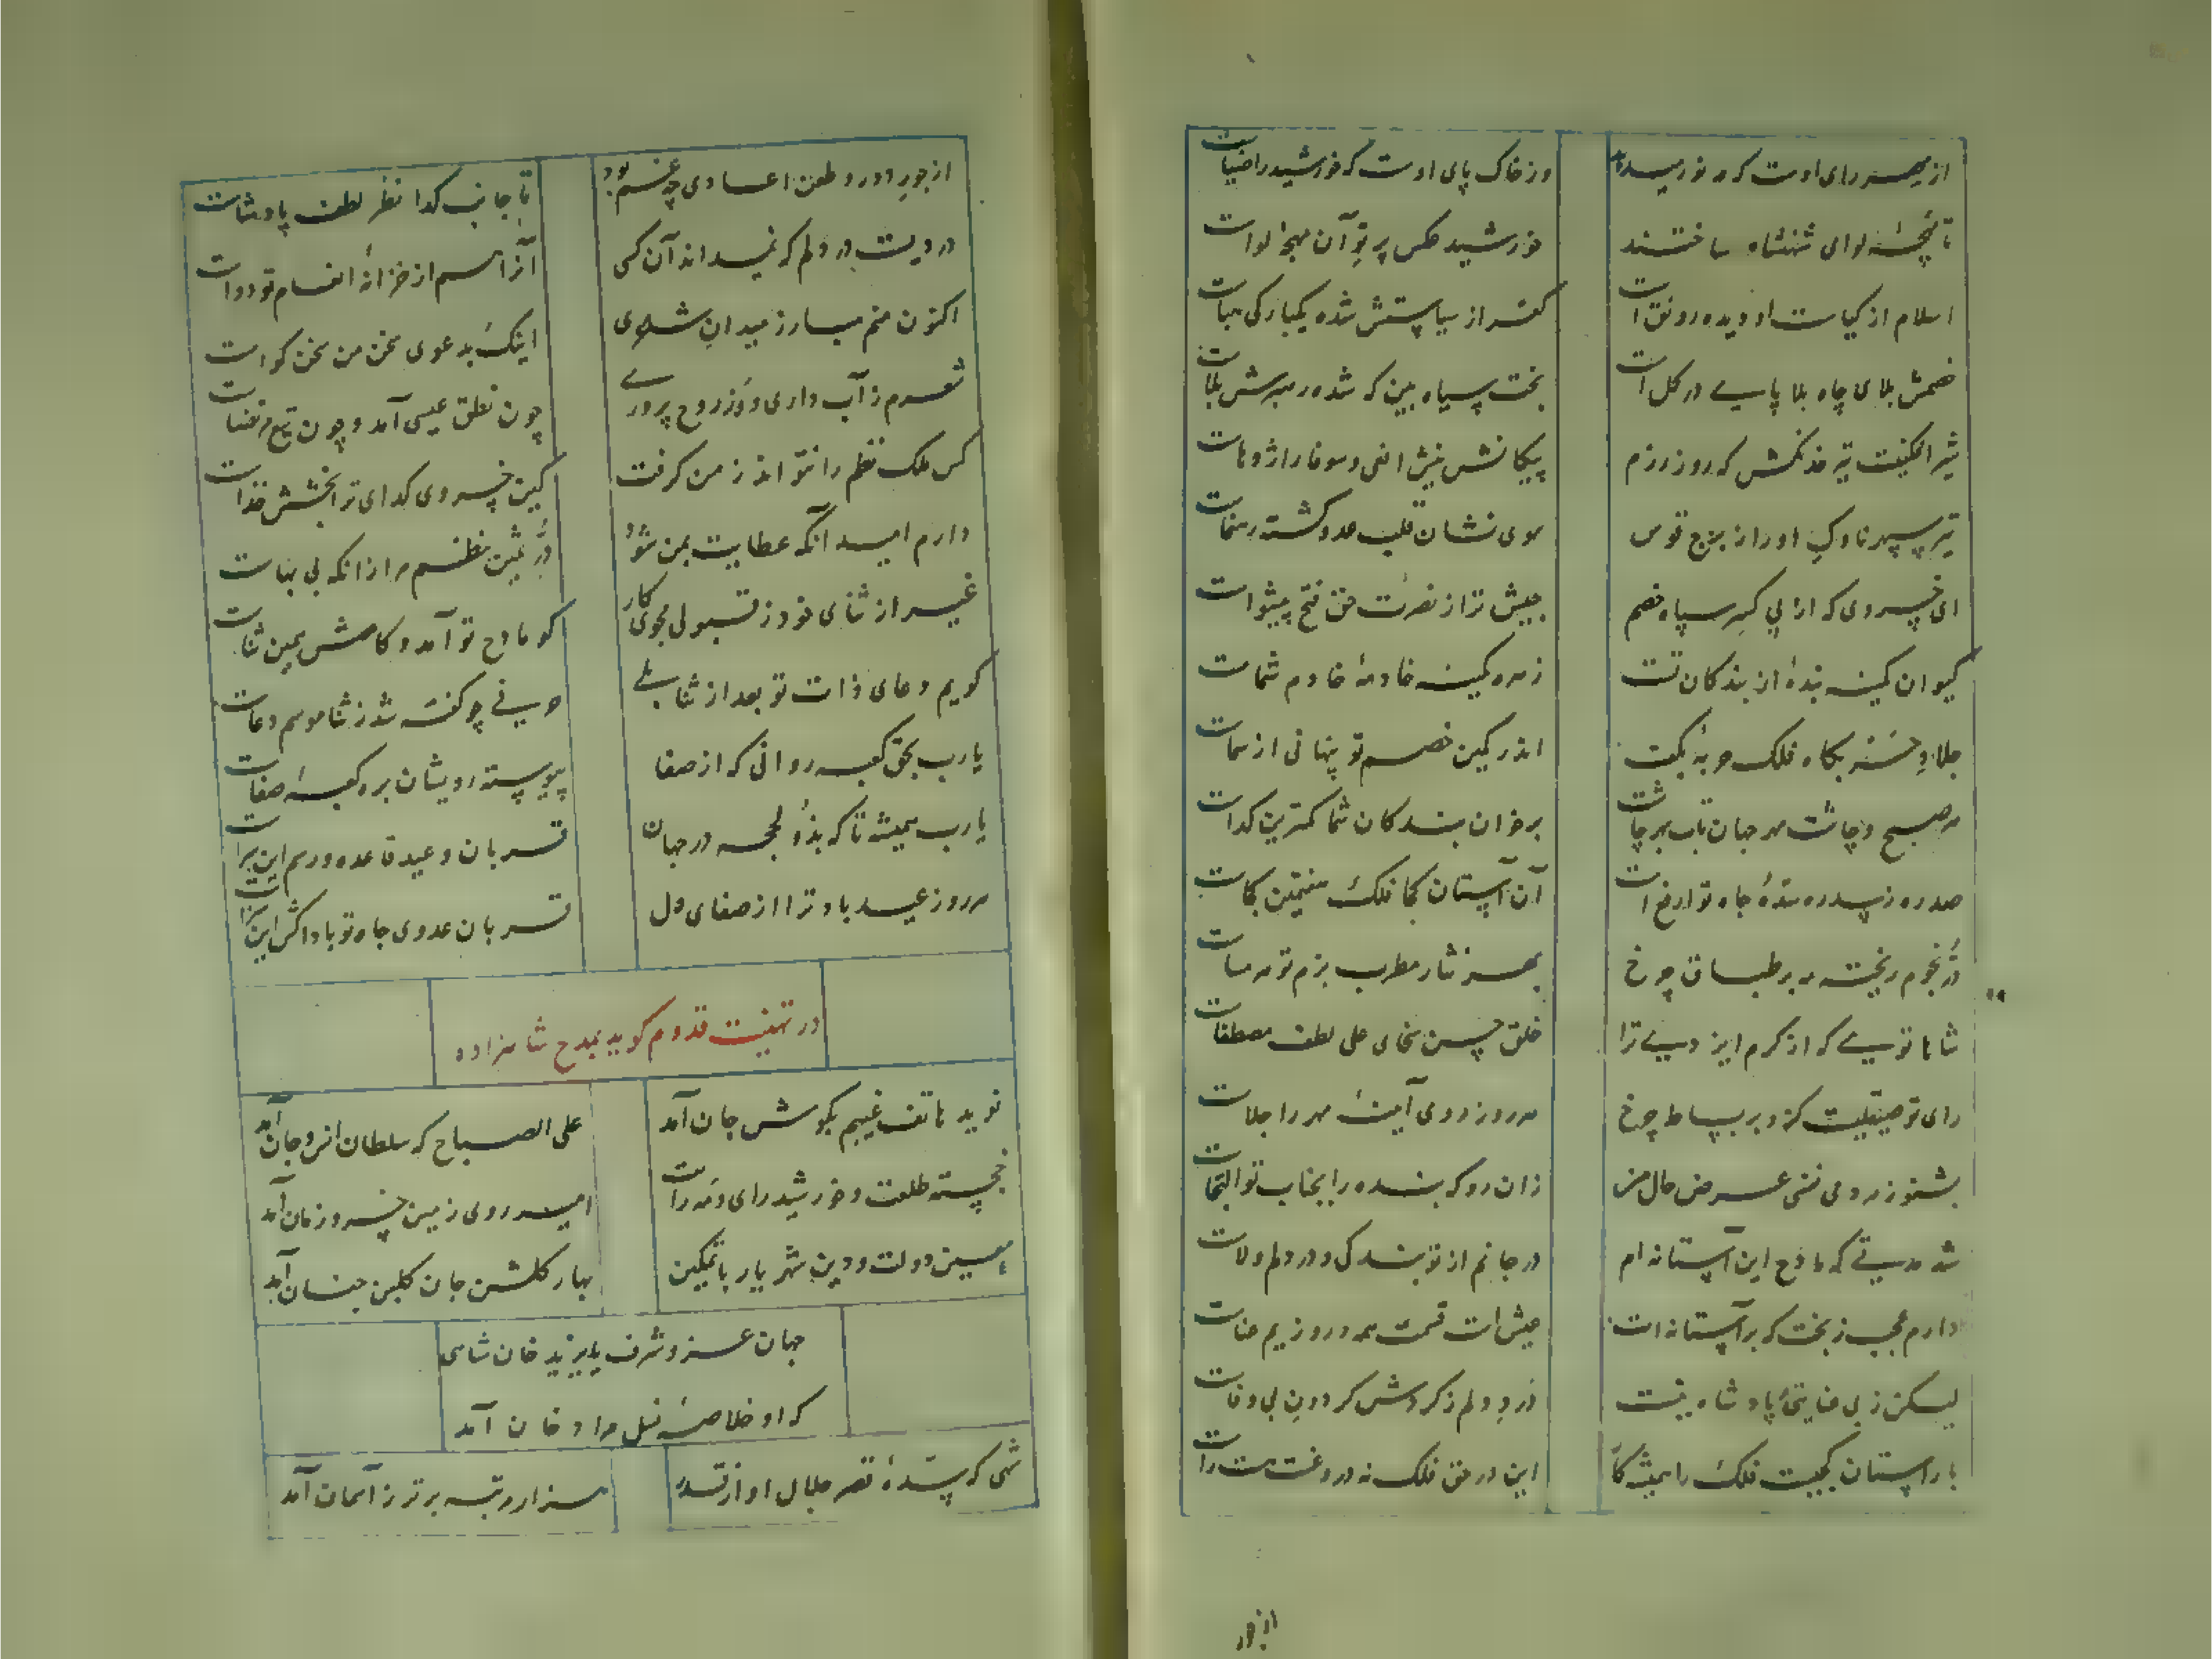 از مهر رای اوست که مه نور میدهد
وز خاک پای اوست که خورشید را ضیاست
تا پنجهٔ لوای شهنشاه ساختند
خورشید عکس پرتو آن مهجهٔ لواست
اسلام از کیاست او دیده رونق است
کفر از سیاستش شده یکبارگی هباست
خصمش بلای چاه بلا پای در گل است
بخت سیاه بین که شده رهبرش بلاست
تیر افکنیست تیر خدنگش که روز رزم
پیکانش نیش افعی و سوفار اژدهاست
تیر سپهر ناوک او را ز برج قوس
سوی نشان قلب عدو گشته رهنماست
ای خسروی که از پی کسر سپاه خصم
جیش ترا ز نصرت حق فتح پیشواست
کیوان کمینه بندهٔ از بندکان تست
زهره کمینه خادمهٔ خادم شماست
اندر کمین خصم تو پنهانی از سماست
هر صبح و چاشت مهر جهان تاب بهر چاشت
بر خوان بندکان شما کمترین کداست
صد ره ز سدره سدهٔ جاه تو ارفع است
آن آستان کجا فلک هفتمین کجاست
در نجوم ریخته بر طباق چرخ
بهر نثار مطرب بزم تو مه ساست
شاها تویی که از کرم ایزدی ترا
خلق حسن سخای علی لطف مصطفاست
رای تو صیقلیست کزو بر بساط چرخ
هر روز روی آینهٔ مهر را جلاست
بشنو ز مردمی نفسی عرض حال من
زان رو که بنده را بجناب تو التجاست
شد مدتی که مادح این آستانه ام
در جانم از تو بندکی و در دلم ولاست
دارم عجب ز بخت که بر آستانه ات
عیش است قسمت همه و روزیم عناست
لیکن ز بی عنایتی پادشاه نیست
درد دلم ز کردش کردون بی وفاست
با راستان کجیست فلک را همیشه کار
این در حق فلک نه دروغست هست راست
از جور
از جور دور و طعن اعادی چه غم بود
تا جانب کدا نظر لطف پادشاست
دردیست در دلم که نمیداند آن کسی
آنرا اسم از خزانهٔ انعام تو دواست
اکنون منم مبارز میدان شاعری
اینک بدعوی سخن من سخن کواست
شعرم ز آب داری و وز روح پروری
چون نطق عیسی آمد و چون تیغ مرتضاست
کس ملک نظم را نتواند ز من کرفت
کین خسروی کدای ترا بخشش خداست
دارم امید آنکه عطایت بمن شود
در ثمین نظم مرا زانکه بی بهاست
غیر از ثنای خود ز قبولی مجوی کار
کو مادح تو آمد و کامش همین ثناست
کویم دعای ذات تو بعد از ثنا بلی
حرفی چو کفته شد ز ثنا موسم دعاست
یارب بحق کعبه روانی که از صفا
پیوسته رویشان بره کعبهٔ صفاست
یارب همیشه تا که بذو لحجه در جهان
قربان و عید قاعده و رسم این سراست
هر روز عید باد ترا از صفای دل
قربان عدوی جاه تو بادا کش این سزاست
در تهنیت قدوم کوید بمدح شاهزاده
نوید هاتف غیبم بکوش جان آمد
علی الصباح که سلطان انس و جان آمد
خجسته طلعت و خورشید رای و مه رایت
امیر روی زمین خسرو زمان آمد
معین دولت و دین شهریار با تمکین
بهار کلشن جان کلبن جنان آمد
جهان عز و شرف بایزید خان شاهی
که او خلاصهٔ نسل مراد خان آمد
شهی که سدهٔ قصر جلال او از قدر
هزار رتبه برتر ز آسمان آمد